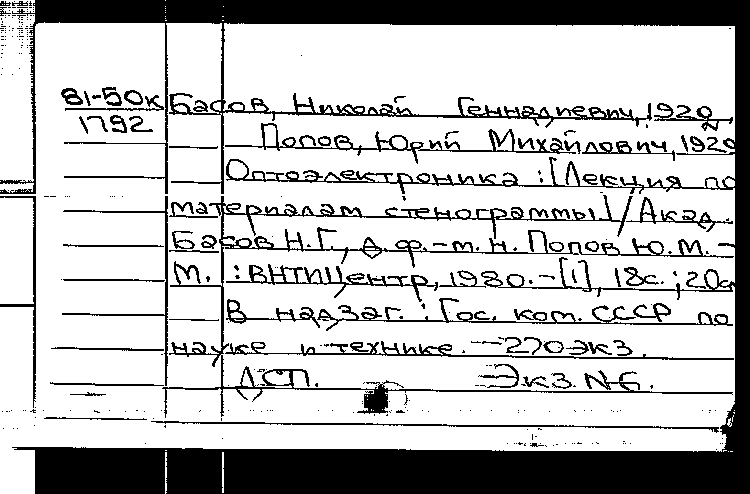 81-50к Басов, Николай Геннадиевич, 1920,
1792 Попов, Юрий Михайлович, 1929
Оптоэлектроника : [Лекция по
материалам стенограммы] / Акад.
Басов Н.Г., д.ф.-м.н. Попов Ю.М. -
М. : ВНТИЦентр, 1980. - [1], 18с. ; 20см
В надзаг. : Гос. ком. СССР по
науке и технике. - 270 экз.
ДСП. Экз. N 6.